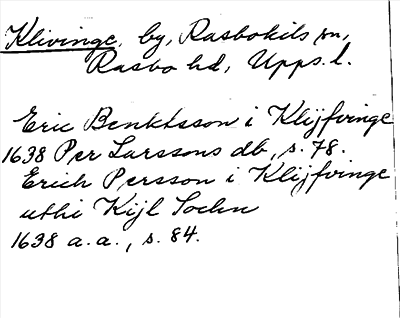 Klivinge, by, Rasbokils sn,
Rasbo hd, Upps. l.
Eric Benktsson i Klijfvinge
1638 Per Larssons db, s. 78.
Erich Persson i Klijfvinge
uthi Kijl Sochn
1638 a.a., s. 84.